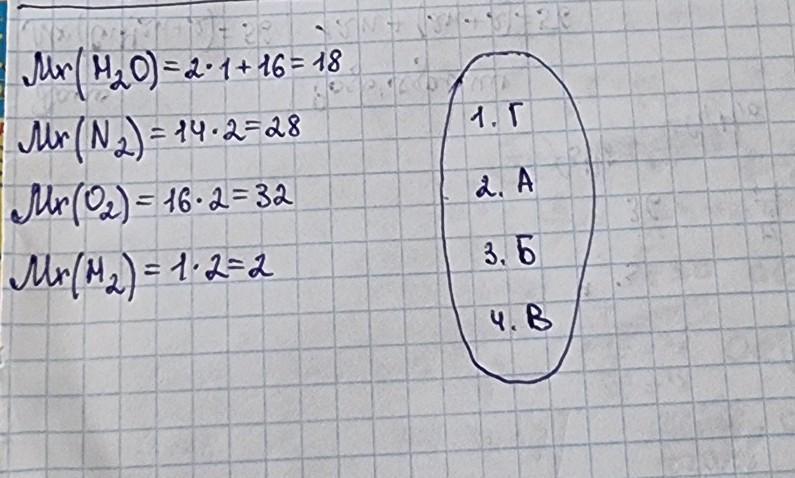 Mr(H₂O) = 2·1 + 16 = 18
Mr(N₂) = 14·2 = 28
Mr(O₂) = 16·2 = 32
Mr(H₂) = 1·2 = 2
1. Г
2. А
3. Б
4. В